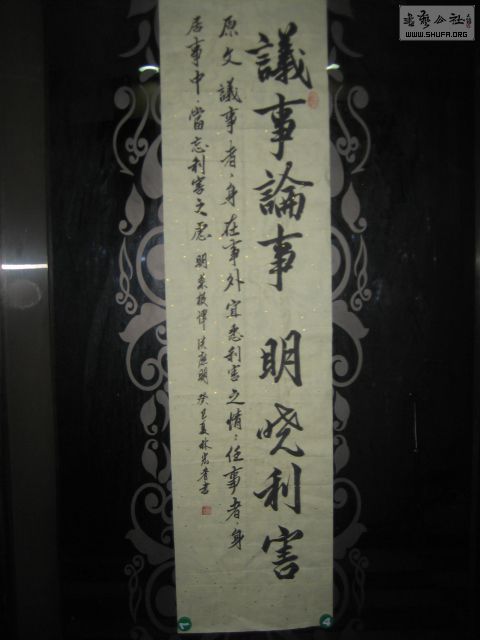 議事論事 明晓利害
原文 議事者、身在事外宜悉利害之情、任事者、身
居事中、當忘利害之慮 明 菜根譚 洪應明 癸巳夏林書
書藝公社
WWW.SHUFA.ORG